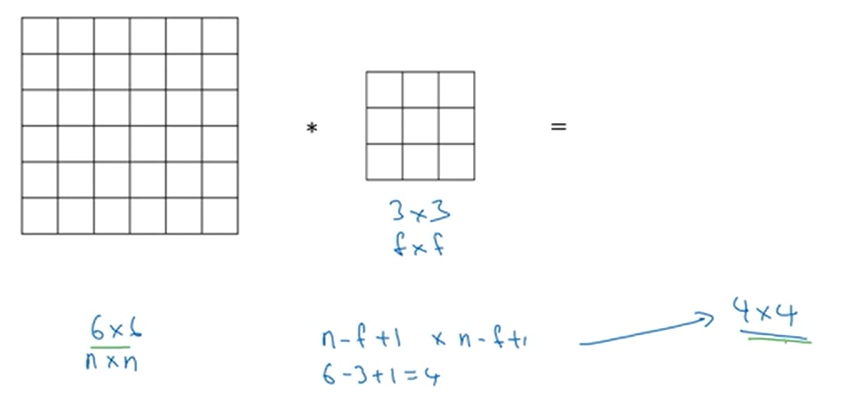 * =
3×3
f×f
6×6
n×n
n-f+1 × n-f+1
6-3+1=4
4×4